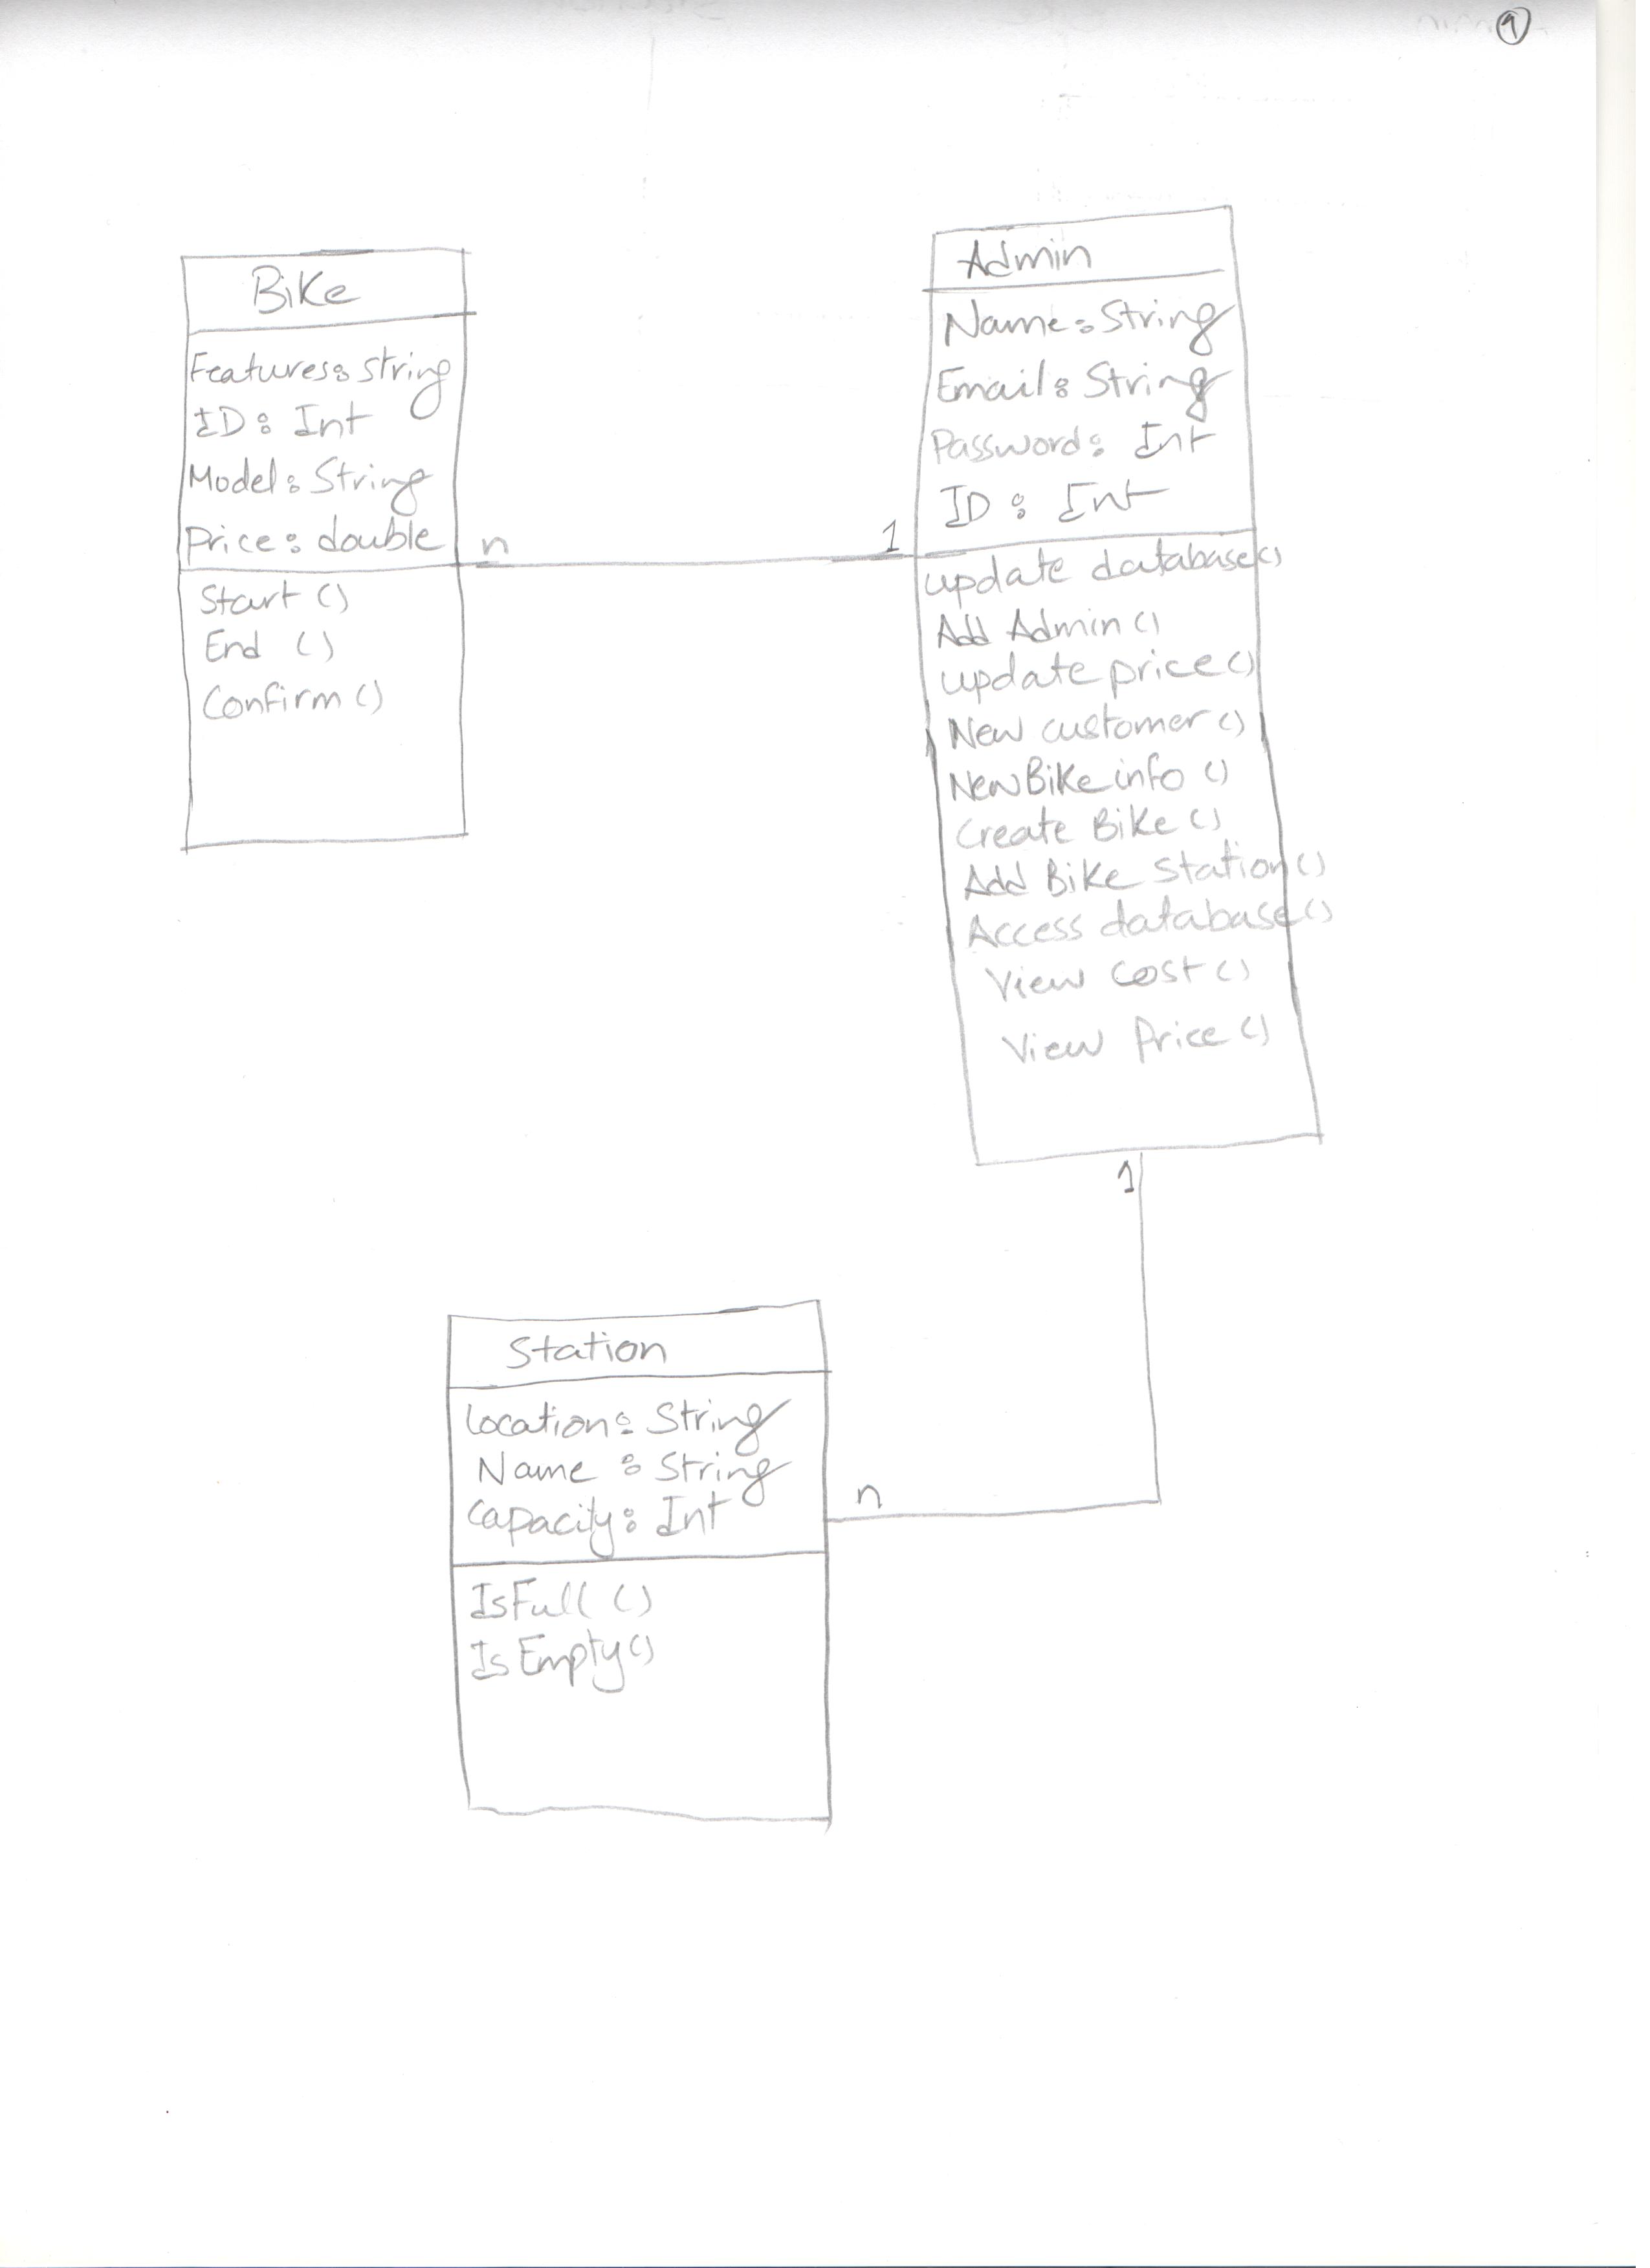 1
Bike
Features: string
ID: Int
Model: String
Price: double
Start ()
End ()
Confirm ()
n
1
Admin
Name: String
Email: String
Password: Int
ID: Int
update database()
Add Admin ()
update price ()
New customer ()
New Bike info ()
Create Bike ()
Add Bike Station ()
Access database ()
View cost ()
View Price ()
1
Station
Location: String
Name: String
Capacity: Int
IsFull ()
Is Empty ()
n